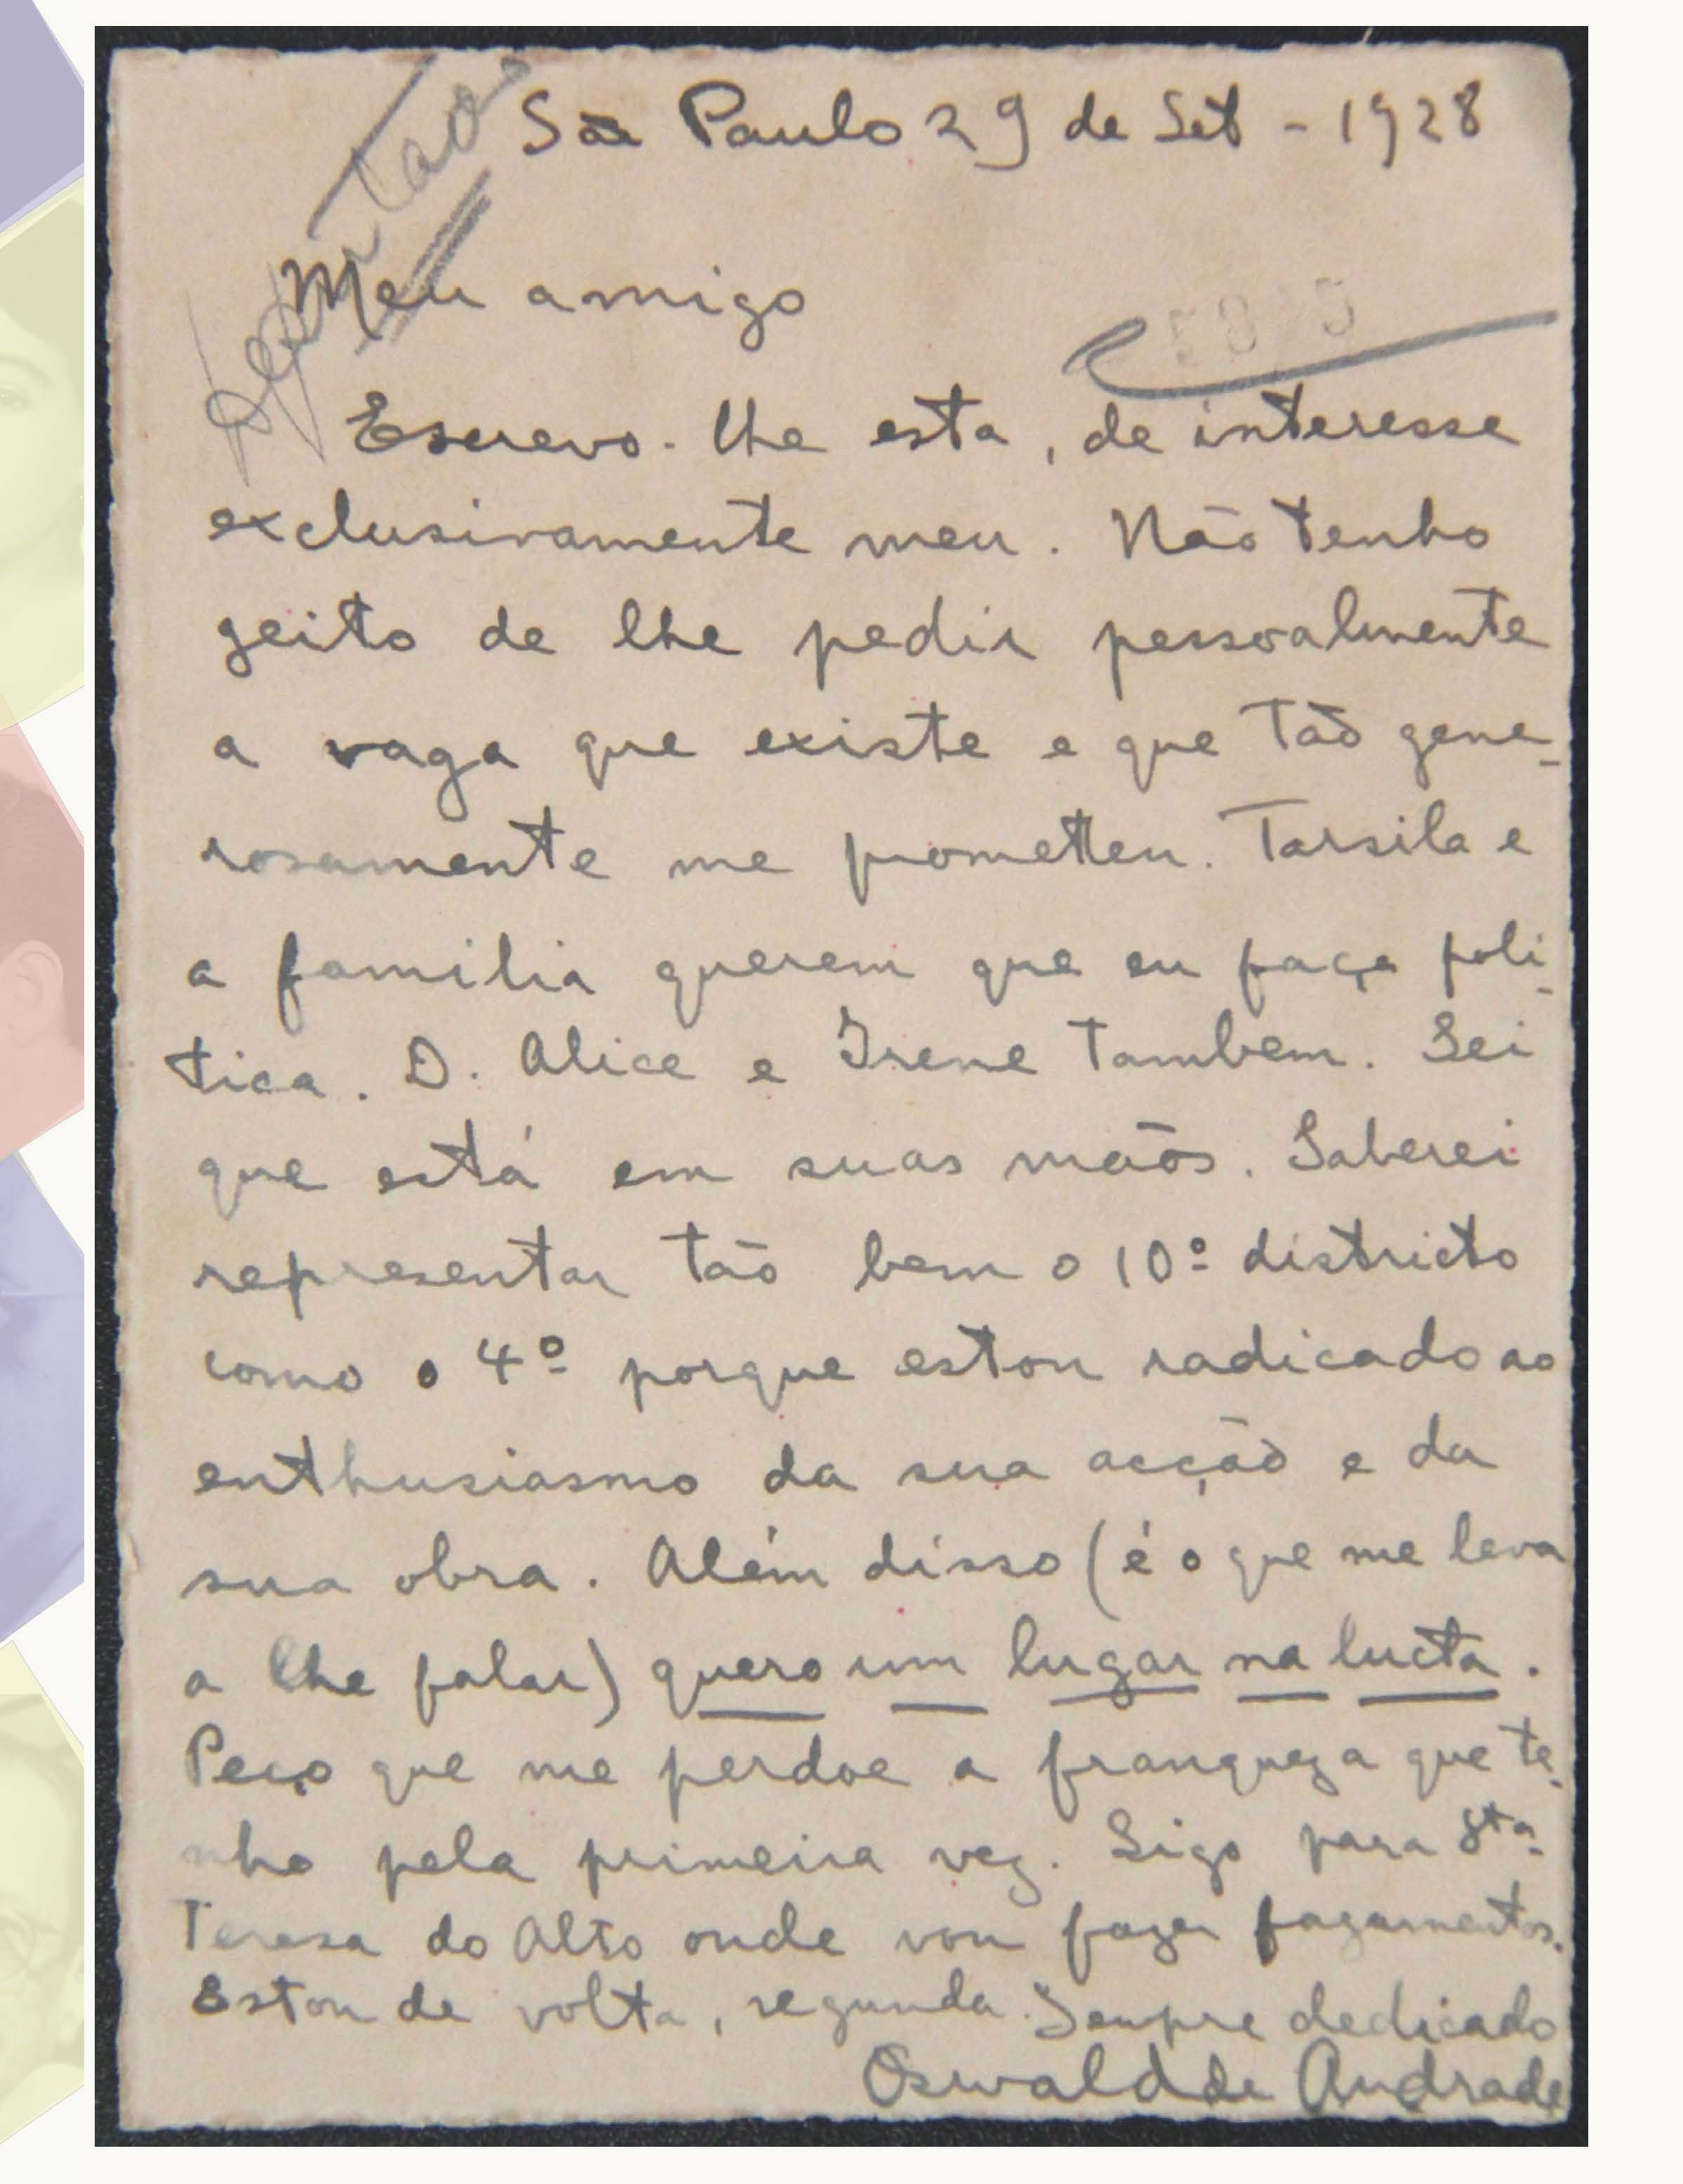 São Paulo 29 de Set - 1928
Meu amigo
Escrevo-lhe esta, de interesse
exclusivamente meu. Não tenho
geito de lhe pedir pessoalmente
a vaga que existe e que tão gene-
rosamente me prometteu. Tarsila e
a familia querem que eu faça poli-
tica. D. Alice e Irene tambem. Sei
que está em suas mãos. Saberei
representar tão bem o 10º districto
como o 4º porque estou radicado ao
enthusiasmo da sua acção e da
sua obra. Além disso (é o que me leva
a lhe falar) quero um lugar na lucta.
Peço que me perdoe a franqueza que te-
nho pela primeira vez. Sigo para Sta.
Teresa do Alto onde vou fazer pagamentos.
Estou de volta, segunda. Sempre dedicado
Oswald de Andrade